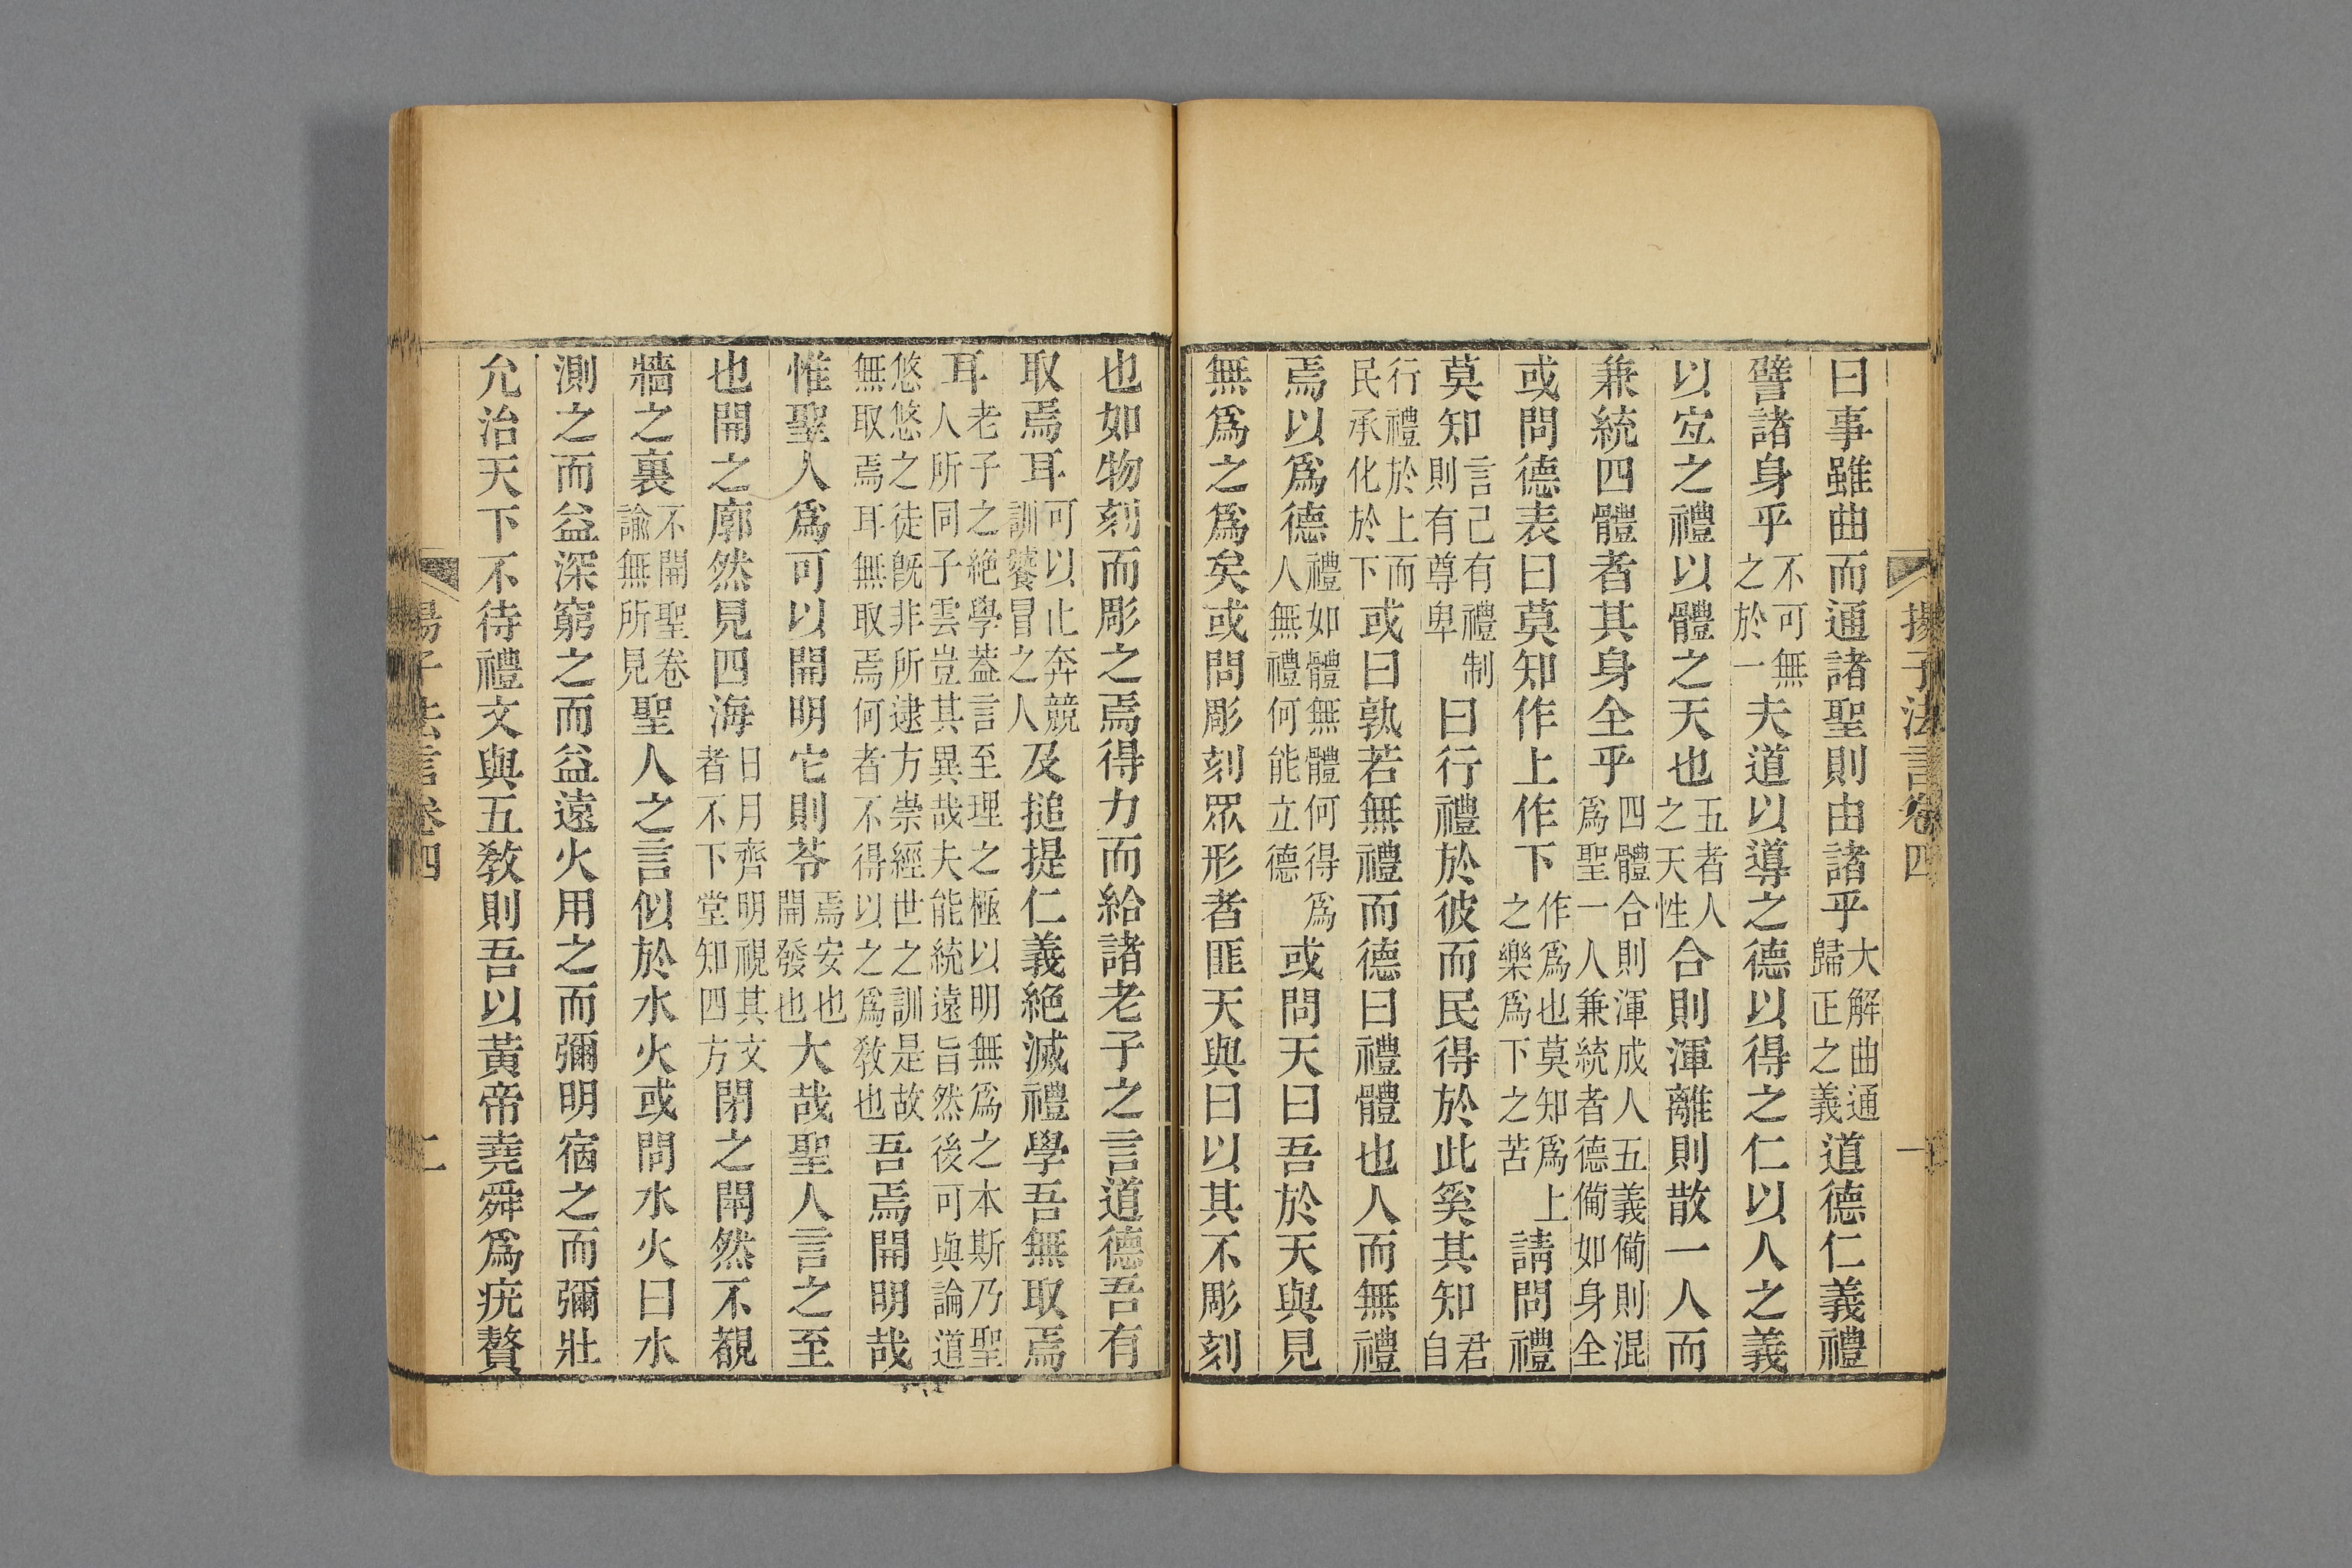 揚子法言卷四 一
曰事雖曲而通諸聖則由諸乎大解曲通歸正之義道德仁義禮
譬諸身乎不可無之於一夫道以導之德以得之仁以人之義
以宜之禮以體之天也五者人之天性合則渾離則散一人而
兼統四體者其身全乎四體合則渾成人五義備則混爲聖一人兼統者德備如身全
或問德表曰莫知作上作下作爲也莫知爲上之樂爲下之苦請問禮
莫知言己有禮制則有尊卑曰行禮於彼而民得於此奚其知君自
行禮於上而民承化於下或曰孰若無禮而德曰禮體也人而無禮
焉以爲德禮如體無體何得爲人無禮何能立德或問天曰吾於天與見
無爲之爲矣或問彫刻眾形者匪天與曰以其不彫刻
也如物刻而彫之焉得力而給諸老子之言道德吾有
取焉耳可以止奔競訓饕冒之人及搥提仁義絕滅禮學吾無取焉
耳老子之絕學蓋言至理之極以明無爲之本斯乃聖人所同子雲豈其異哉夫能統遠旨然後可與論道
悠悠之徒既非所逮方崇經世之訓是故無取焉耳無取焉何者不得以之爲教也吾焉開明哉
惟聖人爲可以開明它則苓焉安也開發也大哉聖人言之至
也開之廓然見四海日月齊明視其文者不下堂知四方閉之閈然不覩
牆之裏不開聖卷諭無所見聖人之言似於水火或問水火曰水
測之而益深窮之而益遠火用之而彌明宿之而彌壯
允治天下不待禮文與五教則吾以黃帝堯舜爲疣贅
子法言卷四 二